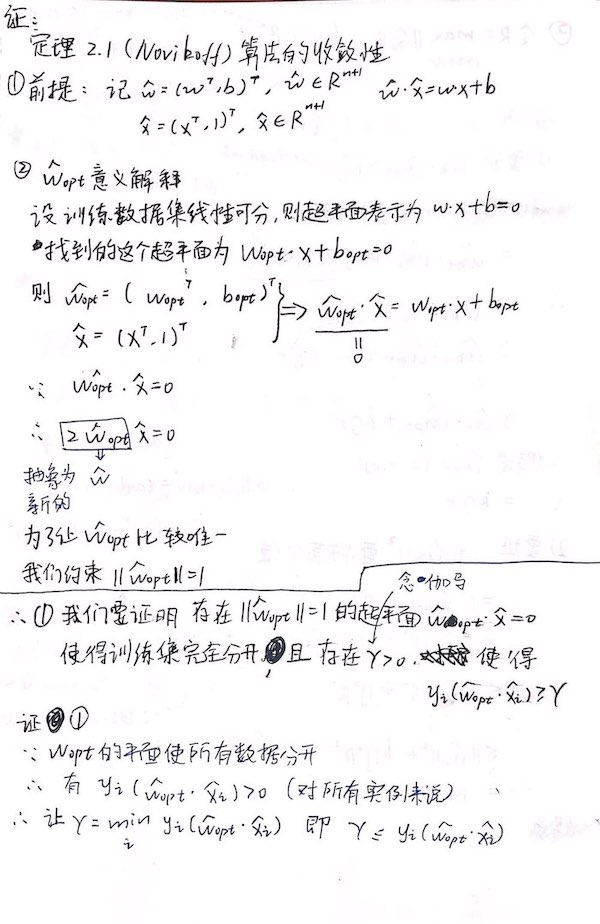 证:
定理 2.1 (Novikoff) 算法的收敛性
① 前提: 记 ŵ=(wᵀ,b)ᵀ, ŵ∈Rⁿ⁺¹ ŵ·x̂=wx+b
x̂=(xᵀ,1)ᵀ, x̂∈Rⁿ⁺¹
② ŵopt 意义解释
设训练数据集线性可分,则超平面表示为 w·x+b=0
找到的这个超平面为 wopt·x+bopt=0
则 ŵopt=(woptᵀ, bopt)ᵀ } ⇒ ŵopt·x̂=wopt·x+bopt
x̂=(xᵀ,1)ᵀ
||
0
∵ ŵopt·x̂=0
∴ 2ŵopt x̂=0
⇓
抽象为 ŵ
新的
为了让 ŵopt 比较唯一
我们约束 ||ŵopt||=1
念 伽马
∴ ① 我们要证明 存在 ||ŵopt||=1 的超平面 ŵopt·x̂=0
使得训练集完全分开, 且 存在 γ>0. 使得
yi(ŵopt·x̂i)≥γ
证 ①
∵ wopt 的平面使所有数据分开
∴ 有 yi(ŵopt·x̂i)>0 (对所有实例来说)
∴ 让 γ=min yi(ŵopt·x̂i) 即 γ≤yi(ŵopt·x̂i)
i